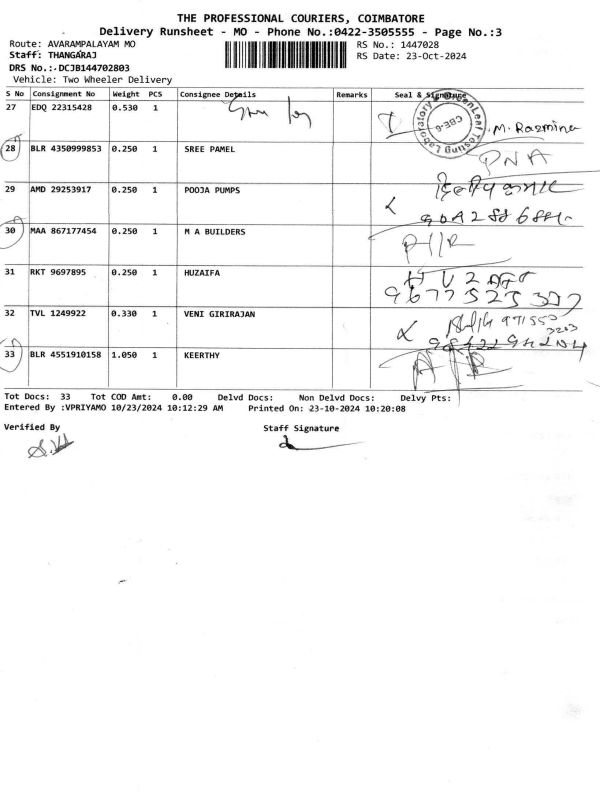 THE PROFESSIONAL COURIERS, COIMBATORE
Delivery Runsheet - MO - Phone No.:0422-3505555 - Page No.:3
Route: AVARAMPALAYAM MO RS No.: 1447028
Staff: THANGARAJ RS Date: 23-Oct-2024
DRS No.:-DCJB144702803
Vehicle: Two Wheeler Delivery
S No Consignment No Weight PCS Consignee Details Remarks Seal & Signature
27 EDQ 22315428 0.530 1
GreenLeaf Testing Laboratory CBE-6
M. Razmina
28 BLR 4350999853 0.250 1 SREE PAMEL PNA
29 AMD 29253917 0.250 1 POOJA PUMPS
30 MAA 867177454 0.250 1 M A BUILDERS
31 RKT 9697895 0.250 1 HUZAIFA
32 TVL 1249922 0.330 1 VENI GIRIRAJAN
33 BLR 4551910158 1.050 1 KEERTHY
Tot Docs: 33 Tot COD Amt: 0.00 Delvd Docs: Non Delvd Docs: Delvy Pts:
Entered By :VPRIYAMO 10/23/2024 10:12:29 AM Printed On: 23-10-2024 10:20:08
Verified By Staff Signature